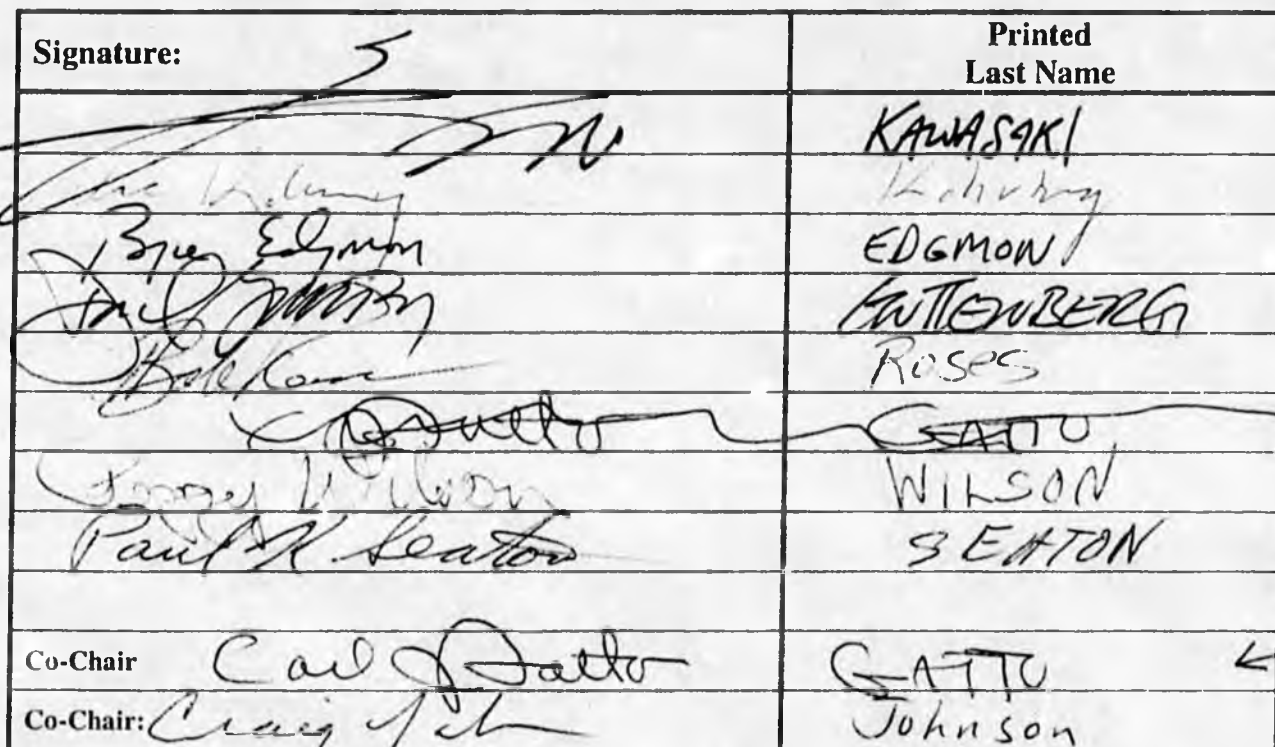 Signature: Printed
Last Name
KAWASAKI
Kohring
Bryce Edgmon EDGMON
GUTTENBERG
Bob Roses Roses
Gatto GATTO
Peggy Wilson WILSON
Paul K Seaton SEATON
Co-Chair Carl J Gatto GATTO
Co-Chair: Craig Johnson Johnson